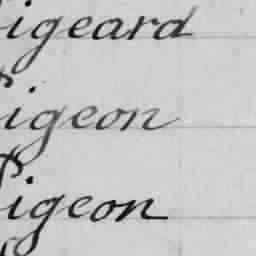 igeard
Pigeon
Pigeon